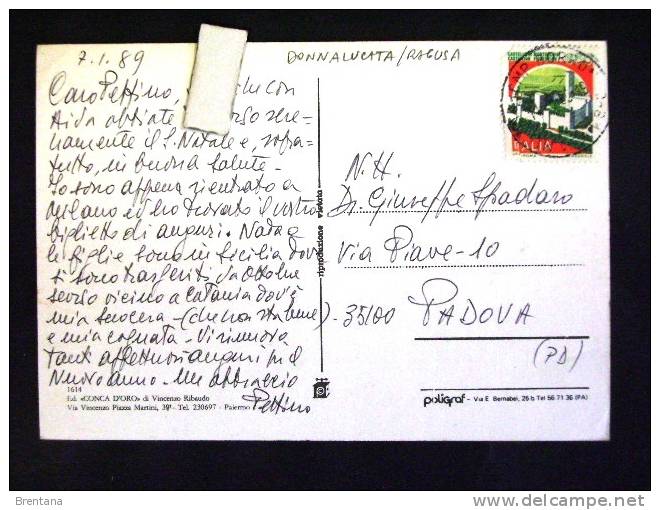 7.1.89
DONNALUCATA/RAGUSA
Caro Pettino, con
Aida abbiate
namente il S. Natale e, sopra-
tutto, in buona salute -
Io sono appena rientrato a
Milano ed ho trovato il vostro
biglietto di auguri.
le figlie sono in Sicilia dove
si sono trasferiti da ottobre
scorso vicino a Catania dov'è
mia suocera -
e mia cognata - Vi rinnovo
tanti affettuosi auguri per il
Nuovo anno - Un abbraccio
Pettino
ITALIA
N.H.
Dr. Giuseppe Spadaro
Via Piave - 10
35100 PADOVA
(PD)
riproduzione vietata
1614
Ed. «CONCA D'ORO» di Vincenzo Ribaudo
Via Vincenzo Piazza Martini, 39 - Tel. 230697 - Palermo
poligraf - Via E. Bernabei, 26 b Tel 56 71 36 (PA)
Brentana
delcampe.net